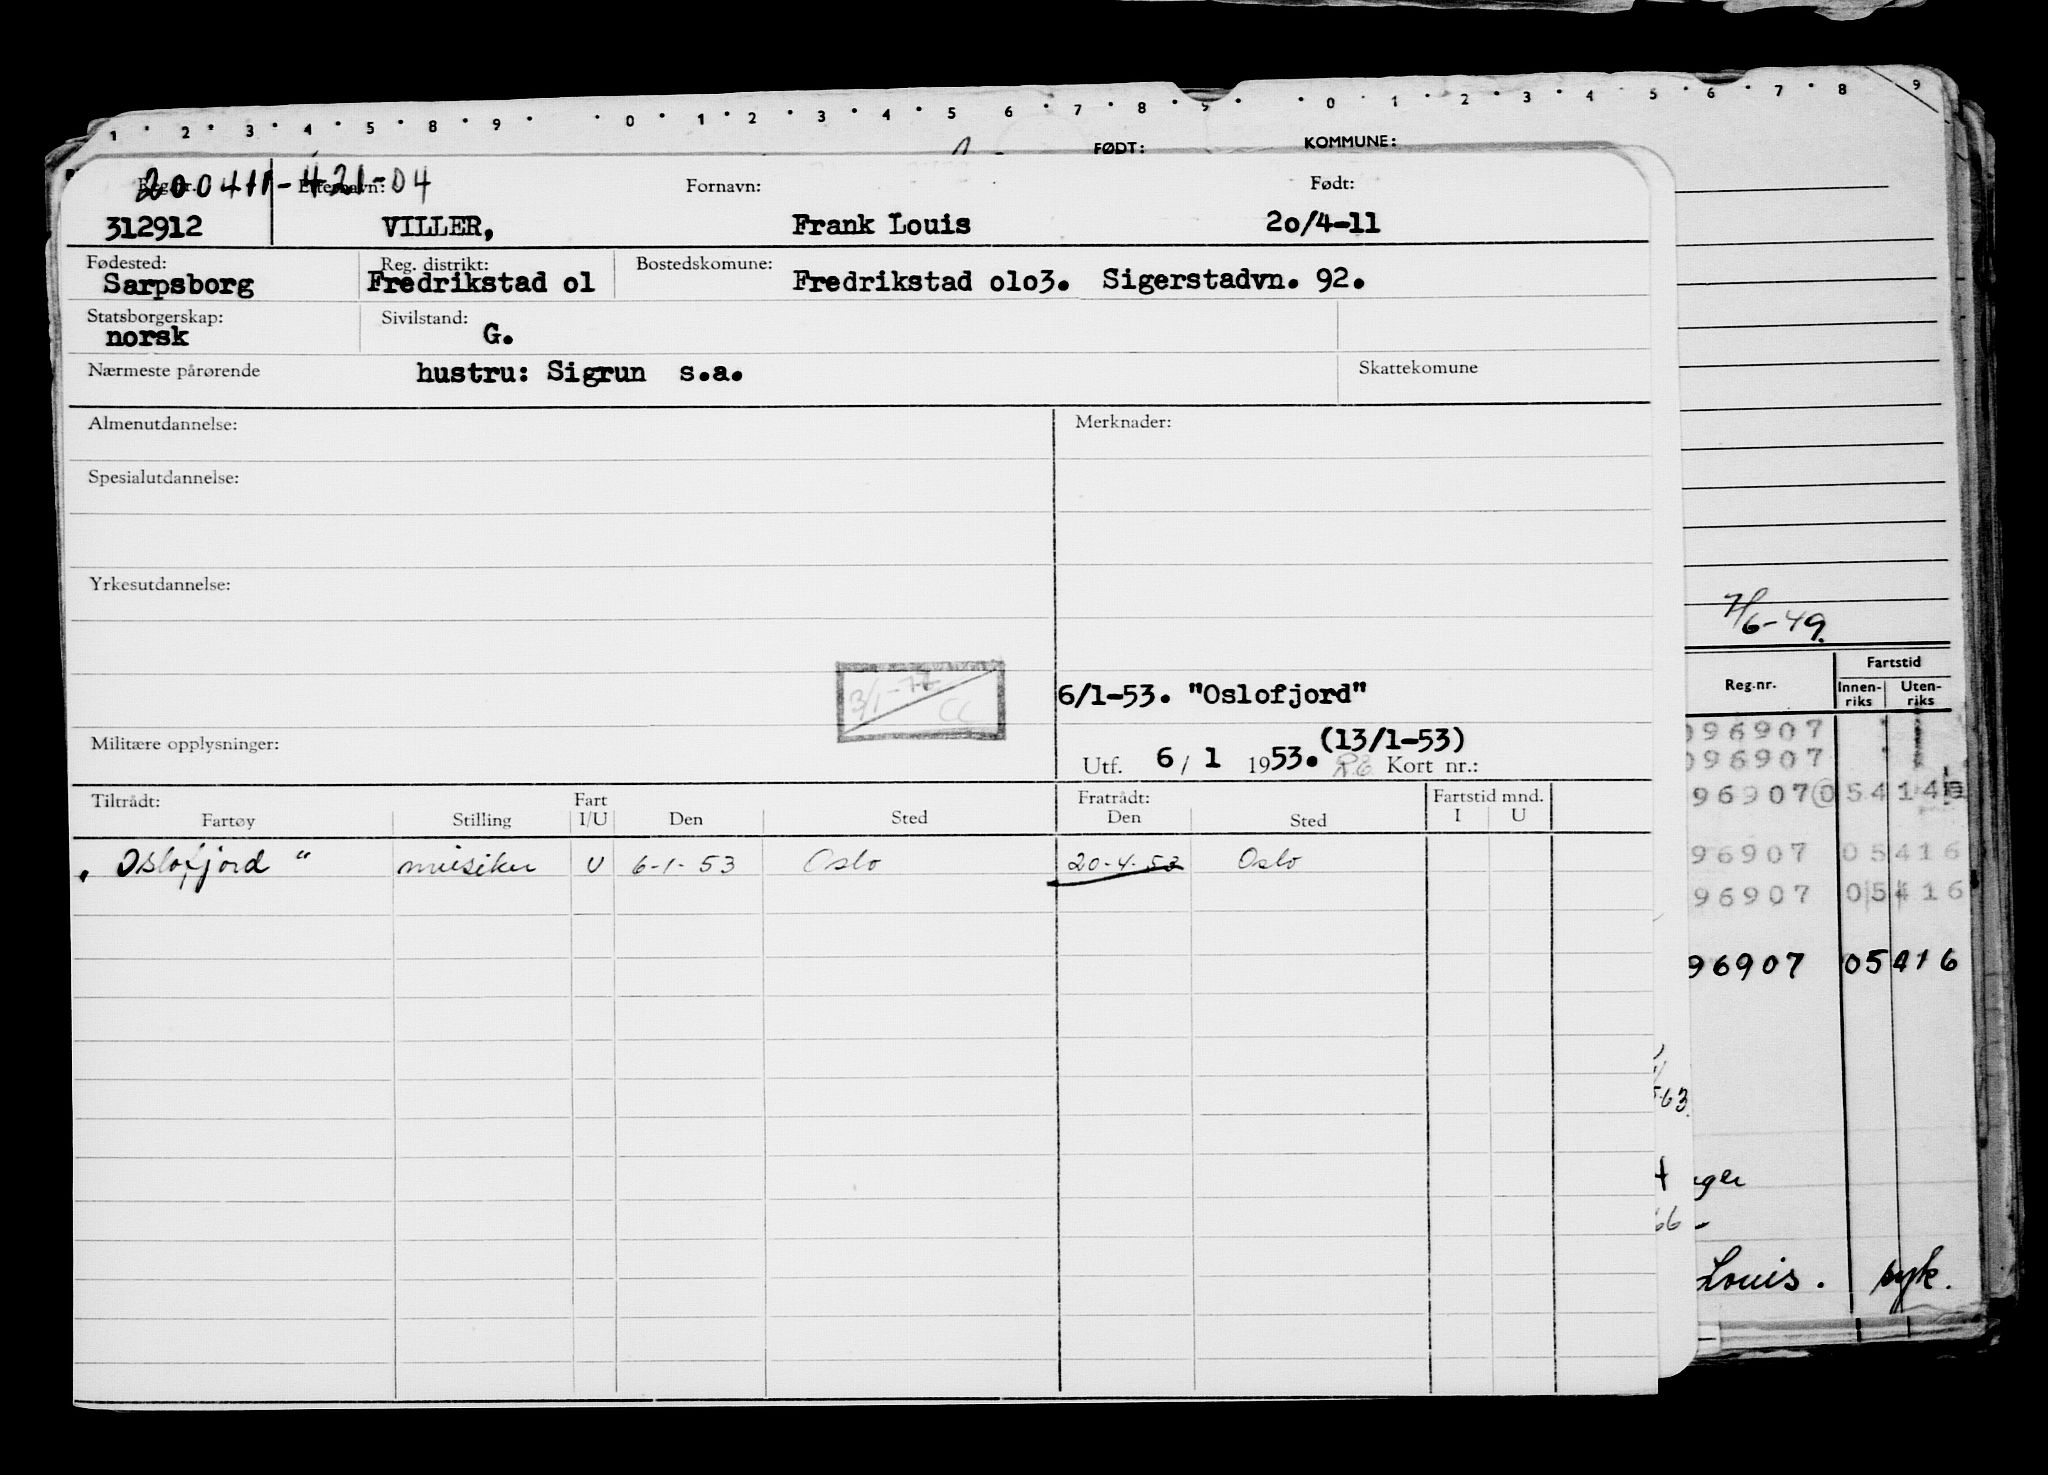 1 2 3 4 5 8 9 0 1 2 3 4 5 6 7 8 9 0 1 2 3 4 5 6 7 8 9
FØDT: KOMMUNE:
200411-421-04
Reg.nr. Efternavn: Fornavn: Født:
312912 VILLER, Frank Louis 2o/4-11
Fødested: Reg. distrikt: Bostedskomune:
Sarpsborg Fredrikstad o1 Fredrikstad o1o3. Sigerstadvn. 92.
Statsborgerskap: Sivilstand:
norsk G.
Nærmeste pårørende hustru: Sigrun s.a. Skattekomune
Almenutdannelse: Merknader:
Spesialutdannelse:
Yrkesutdannelse:
7/6-49.
Fartstid
Reg.nr. Innen- Uten-
riks riks
3/1-77 CC
6/1-53. "Oslofjord"
096907
(13/1-53)
Militære opplysninger:
096907
Utf. 6/1 1953. Kort nr.:
Tiltrådt: Fart Fratrådt: Fartstid mnd.
Fartøy Stilling I/U Den Sted Den Sted I U
96907 0 5414
"Oslofjord" musiker U 6-1-53 Oslo 20-4-53 Oslo
96907 05416
96907 05416
96907 05416
63.
ager
66-
Louis. syk.